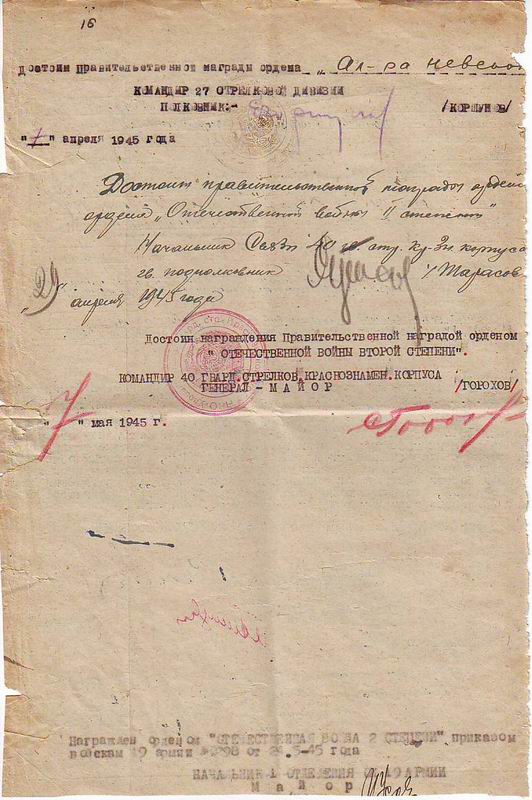 16
Достоин Правительственной награды ордена "Ал-ра Невского
КОМАНДИР 27 СТРЕЛКОВОЙ ДИВИЗИИ
ПОЛКОВНИК:- /КОРШУНОВ/
"7" апреля 1945 года
Достоин правительственной награды
ордена "Отечественной войны II степени"
Начальник Связи 40 гв. стр. кр-Зн. корпуса
гв. подполковник /Тарасов
"29" апреля 1945 года
Достоин награждения Правительственной наградой орденом
" ОТЕЧЕСТВЕННОЙ ВОЙНЫ ВТОРОЙ СТЕПЕНИ".
КОМАНДИР 40 ГВАРД.СТРЕЛКОВ.КРАСНОЗНАМЕН.КОРПУСА
ГЕНЕРАЛ - МАЙОР /ГОРОХОВ/
"7" мая 1945 г.
Награжден орденом "ОТЕЧЕСТВЕННАЯ ВОЙНА 2 СТЕПЕНИ" приказом
войскам 19 армии от 5-45 года
НАЧАЛЬНИК 1 ОТДЕЛЕНИЯ 19 АРМИИ
М а й о р